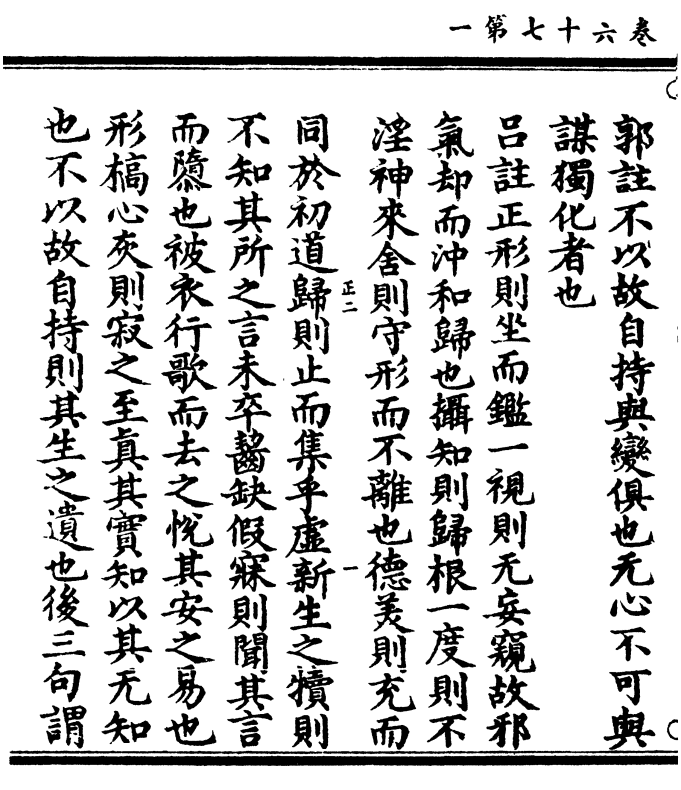 卷六十七第一
郭註不以故自持與變俱也无心不可與
謀獨化者也
呂註正形則坐而鑑一視則无妄窺故邪
氣却而沖和歸也攝知則歸根一度則不
淫神來舍則守形而不離也德美則充而
正二
一
同於初道歸則止而集乎虛新生之犢則
不知其所之言未卒齧缺假寐則聞其言
而隳也被衣行歌而去之悅其安之易也
形槁心灰則寂之至真其實知以其无知
也不以故自持則其生之遺也後三句謂